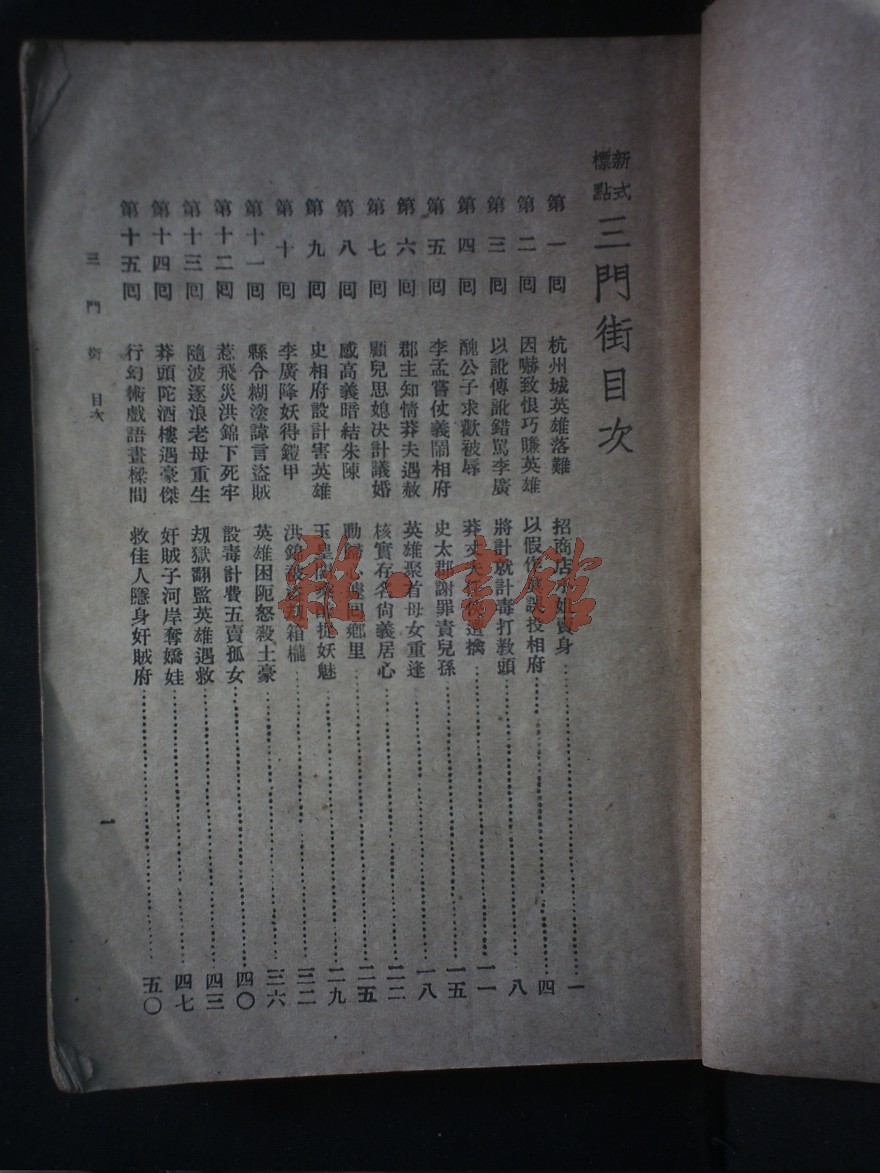 新式標點 三門街目次
第一回 杭州城英雄落難 招商店 身 一
第二回 因嚇致恨巧賺英雄 以假作眞誤投相府 四
第三回 以訛傳訛錯駡李廣 將計就計毒打敎頭 八
第四回 醜公子求歡被辱 莽 擒 一一
第五回 李孟嘗仗義鬧相府 史太郡謝罪責兒孫 一五
第六回 郡主知情莽夫遇赦 英雄聚首母女重逢 一八
第七回 顧兒思媳决計議婚 核實存名尙義居心 二二
第八回 感高義暗結朱陳 動歸心 回鄕里 二五
第九回 史相府設計害英雄 玉皇 捉妖魅 二九
第十回 李廣降妖得鎧甲 洪錦被盜刦箱櫳 三二
第十一回 縣令糊塗諱言盜賊 英雄困阨怒殺土豪 三六
第十二回 惹飛災洪錦下死牢 設毒計費五賣孤女 四〇
第十三回 隨波逐浪老母重生 刼獄翻監英雄遇救 四三
第十四回 莽頭陀酒樓遇豪傑 奸賊子河岸奪嬌娃 四七
第十五回 行幻術戲語畫樑間 救佳人隱身奸賊府 五〇
三門街 目次
一
雅·書館